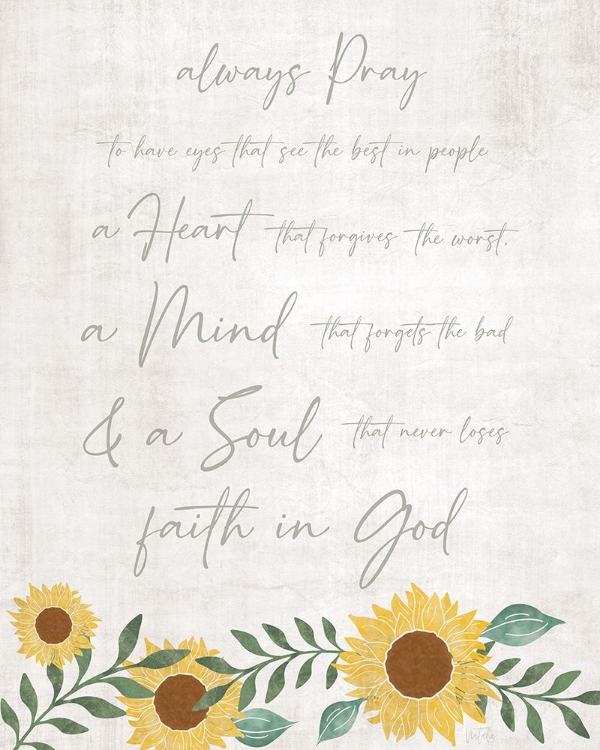 always Pray
to have eyes that see the best in people
a Heart that forgives the worst,
a Mind that forgets the bad
& a Soul that never loses
faith in God